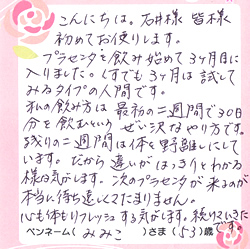 こんにちは。石井様 皆様
初めてお便りします。
プラセンタを飲み始めて3ヶ月目に
入りました。くすでも3ヶ月は試して
みるタイプの人間です。
私の飲み方は 最初の二週間で30日
分を飲むというぜい沢なやり方です。
残りの二週間は体を野離しにして
います。だから違いがはっきりとわかる
様な気がします。次のプラセンタが来るのが
本当に待ち遠しくてたまりません。
心も体もリフレッシュする気がします。続けていきた
ペンネーム(みみこ)さま(53)歳です。